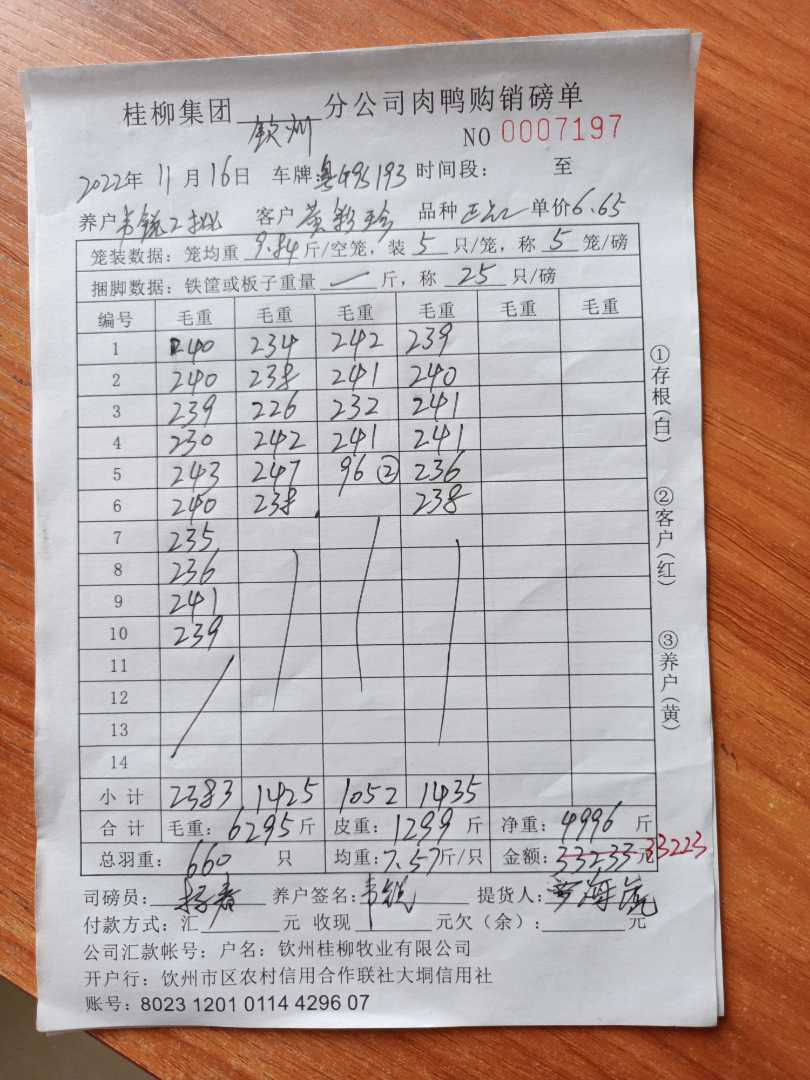 桂柳集团 钦州 分公司肉鸭购销磅单
NO 0007197
2022年 11月16日 车牌: 时间段: 至
养户 客户 黄彩珍 品种 正品 单价6.65
笼装数据: 笼均重 9.84 斤/空笼, 装 5 只/笼, 称 5 笼/磅
捆脚数据: 铁筐或板子重量 — 斤, 称 25 只/磅
编号 毛重 毛重 毛重 毛重 毛重 毛重
1 240 234 242 239
2 240 238 241 240
3 239 226 232 241
4 230 242 241 241
5 243 247 96② 236
6 240 238 238
7 235
8 236
9 241
10 239
11
12
13
14
小计 2383 1425 1052 1435
合计 毛重: 6295斤 皮重: 1299斤 净重: 4996斤
总羽重: 660 只 均重: 7.57斤/只 金额: 33233元 33223
司磅员: 杨春 养户签名: 韦锐 提货人:
付款方式: 汇 元 收现 元欠(余): 元
公司汇款帐号: 户名: 钦州桂柳牧业有限公司
开户行: 钦州市区农村信用合作联社大垌信用社
账号: 8023 1201 0114 4296 07
①存根(白)
②客户(红)
③养户(黄)